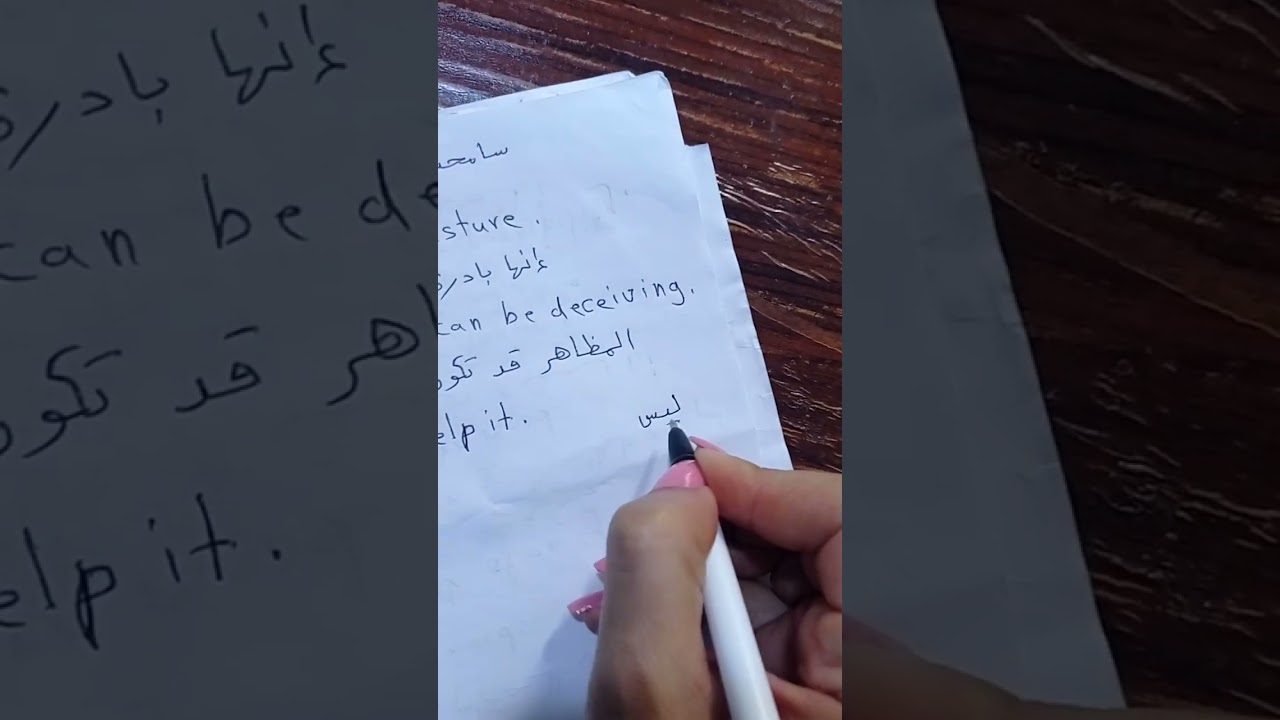 سامحـ
sture.
إنها بادرة
can be deceiving.
المظاهر قد تكو
elp it.
ليس